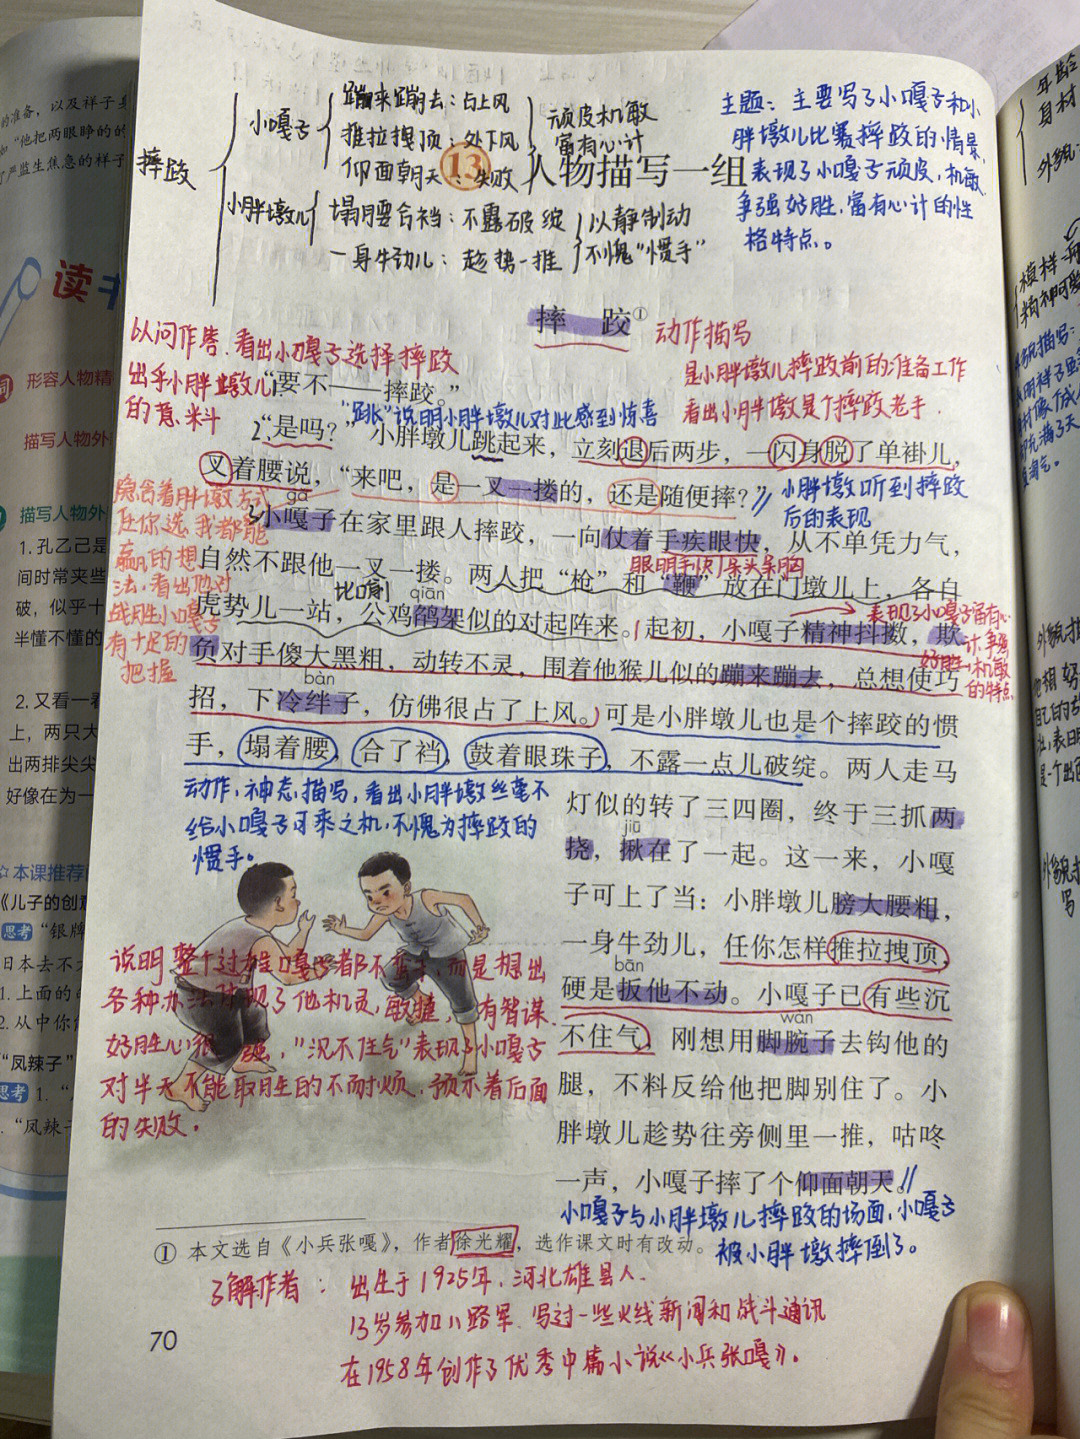 蹦来蹦去：占上风
小嘎子
推拉拽顶：处下风
顽皮机敏
富有心计
仰面朝天：失败
摔跤
小胖墩儿
塌腰合裆：不露破绽
以静制动
一身牛劲儿：趁势一推
不愧“惯手”
主题：主要写了小嘎子和小
胖墩儿比赛摔跤的情景，
表现了小嘎子顽皮，机敏
争强好胜，富有心计的性
格特点。
13 人物描写一组
摔 跤①
动作描写
是小胖墩儿摔跤前的准备工作
看出小胖墩是个摔跤老手.
以问作答.看出小嘎子选择摔跤
出乎小胖墩儿
的意料
“要不——摔跤。”
“跳”说明小胖墩儿对此感到惊喜
2.“是吗？”小胖墩儿跳起来，立刻退后两步，一闪身脱了单褂儿，
叉着腰说，“来吧，是一叉一搂的，还是随便摔？”
小胖墩听到摔跤
后的表现
隐含着胖墩方式
任你选，我都能
赢的想
法，看出他对
战胜小嘎子
有十足的
把握
gā
3小嘎子在家里跟人摔跤，一向仗着手疾眼快，从不单凭力气，
眼明手快
自然不跟他一叉一搂。两人把“枪”和“鞭”放在门墩儿上，各自
比喻 qiān
虎势儿一站，公鸡鹐架似的对起阵来。起初，小嘎子精神抖擞，欺
表现了小嘎子富有心
计、争强
好胜、机敏
的特点
负对手傻大黑粗，动转不灵，围着他猴儿似的蹦来蹦去，总想使巧
bàn
招，下冷绊子，仿佛很占了上风。可是小胖墩儿也是个摔跤的惯
手，塌着腰，合了裆，鼓着眼珠子，不露一点儿破绽。两人走马
动作，神态，描写，看出小胖墩丝毫不
给小嘎子可乘之机，不愧为摔跤的
惯手。
灯似的转了三四圈，终于三抓两
jiū
挠，揪在了一起。这一来，小嘎
子可上了当：小胖墩儿膀大腰粗，
一身牛劲儿，任你怎样推拉拽顶，
bān
硬是扳他不动。小嘎子已有些沉
wàn
不住气，刚想用脚腕子去钩他的
腿，不料反给他把脚别住了。小
胖墩儿趁势往旁侧里一推，咕咚
一声，小嘎子摔了个仰面朝天。
说明整个过 嘎子都不 而是想出
各种办法 现了他机灵，敏捷， 有智谋.
好胜心很强，“沉不住气”表现了小嘎子
对半天不能取胜的不耐烦.预示着后面
的失败.
小嘎子与小胖墩儿摔跤的场面，小嘎子
被小胖墩摔倒了。
① 本文选自《小兵张嘎》，作者徐光耀，选作课文时有改动。
了解作者：出生于1925年，河北雄县人.
13岁参加八路军.写过一些火线新闻和战斗通讯
在1958年创作了优秀中篇小说《小兵张嘎》.
70
的准备，以及样子
“他把两眼睁的的
严监生焦急的样子
读
形容人物精
描写人物外
描写人物外
1. 孔乙己是
间时常来些
破，似乎十
半懂不懂的
2. 又看一看
上，两只大
出两排尖尖
好像在为一
☆本课推荐
《儿子的创
思考 “银牌
日本去不
1. 上面的
2. 从中你
“凤辣子”
思考 1. “
“凤辣子
年龄
身材
外貌